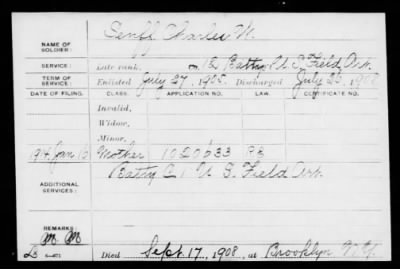 NAME OF SOLDIER: Senff Charles W.
SERVICE: Late rank, 12 Batty U S Field Art.
TERM OF SERVICE: Enlisted July 27, 1905. Discharged July 23, 1908
DATE OF FILING. CLASS. APPLICATION NO. LAW. CERTIFICATE NO.
Invalid,
Widow,
Minor,
Jan Mother 1020633
ADDITIONAL SERVICES: Batty C 1 U S Field Art.
REMARKS:
Died Sept. 17, 1908, at Brooklyn N.Y.